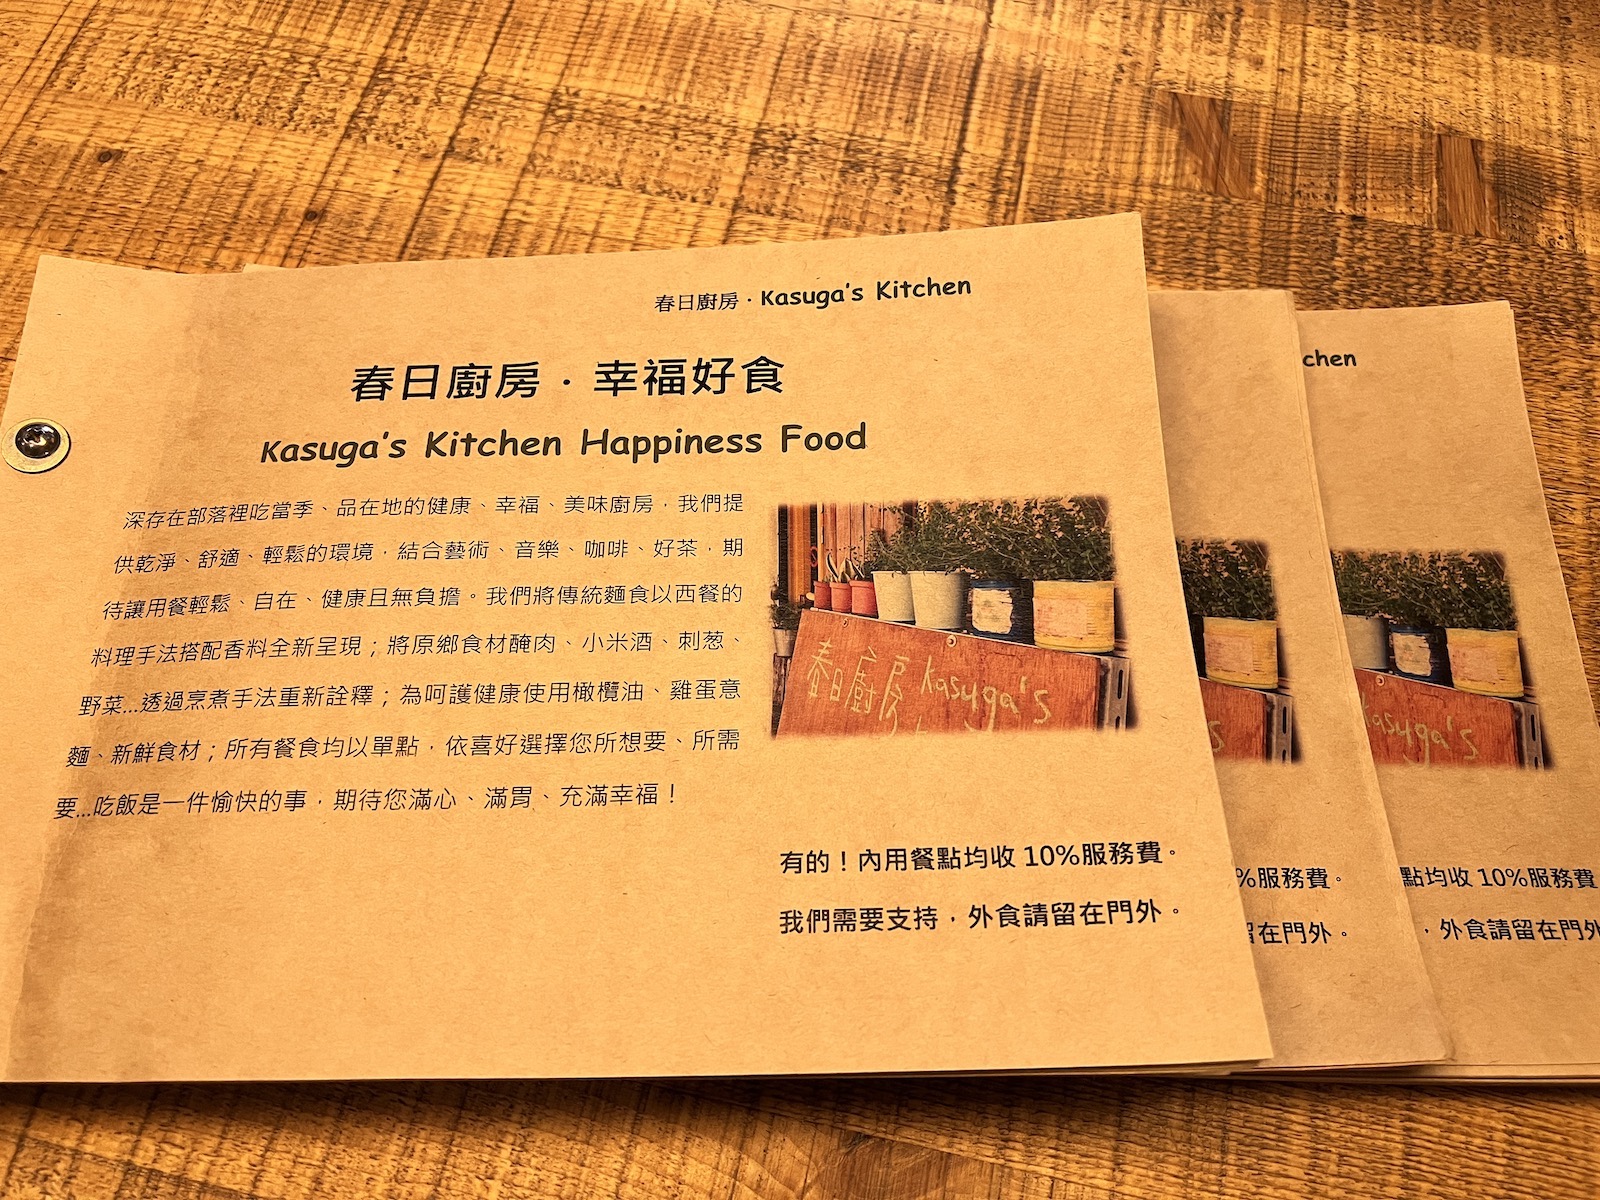 春日廚房．Kasuga's Kitchen
春日廚房．幸福好食
Kasuga's Kitchen Happiness Food
深存在部落裡吃當季、品在地的健康、幸福、美味廚房，我們提
供乾淨、舒適、輕鬆的環境，結合藝術、音樂、咖啡、好茶，期
待讓用餐輕鬆、自在、健康且無負擔。我們將傳統麵食以西餐的
料理手法搭配香料全新呈現；將原鄉食材醃肉、小米酒、刺葱、
野菜...透過烹煮手法重新詮釋；為呵護健康使用橄欖油、雞蛋意
麵、新鮮食材；所有餐食均以單點，依喜好選擇您所想要、所需
要...吃飯是一件愉快的事，期待您滿心、滿胃、充滿幸福！
春日廚房 Kasuga's
有的！內用餐點均收 10%服務費。
我們需要支持，外食請留在門外。
%服務費。
留在門外。
chen
Kasuga's
點均收 10%服務費
，外食請留在門外